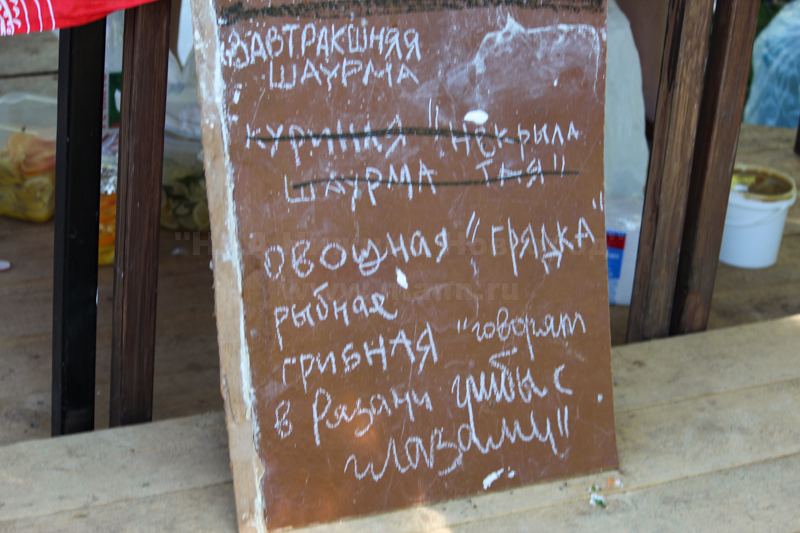 ЗАВТРАКШНЯЯ
ШАУРМА
КУРИНАЯ "НЕКРЫЛА
ШАУРМА ТАЯ"
ОВОЩНАЯ "ГРЯДКА"
рыбная
ГРИБНАЯ "говорят
в Рязани грибы с
глазами"